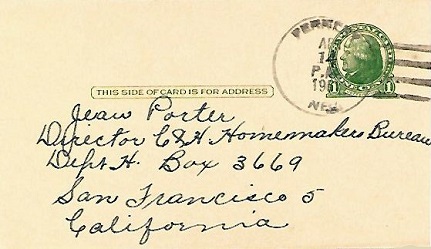 THIS SIDE OF CARD IS FOR ADDRESS
AP
14
P.M.
NEB.
Jean Porter
Director C&H Homemakers Bureau
Dept H. Box 3669
San Francisco 5
California